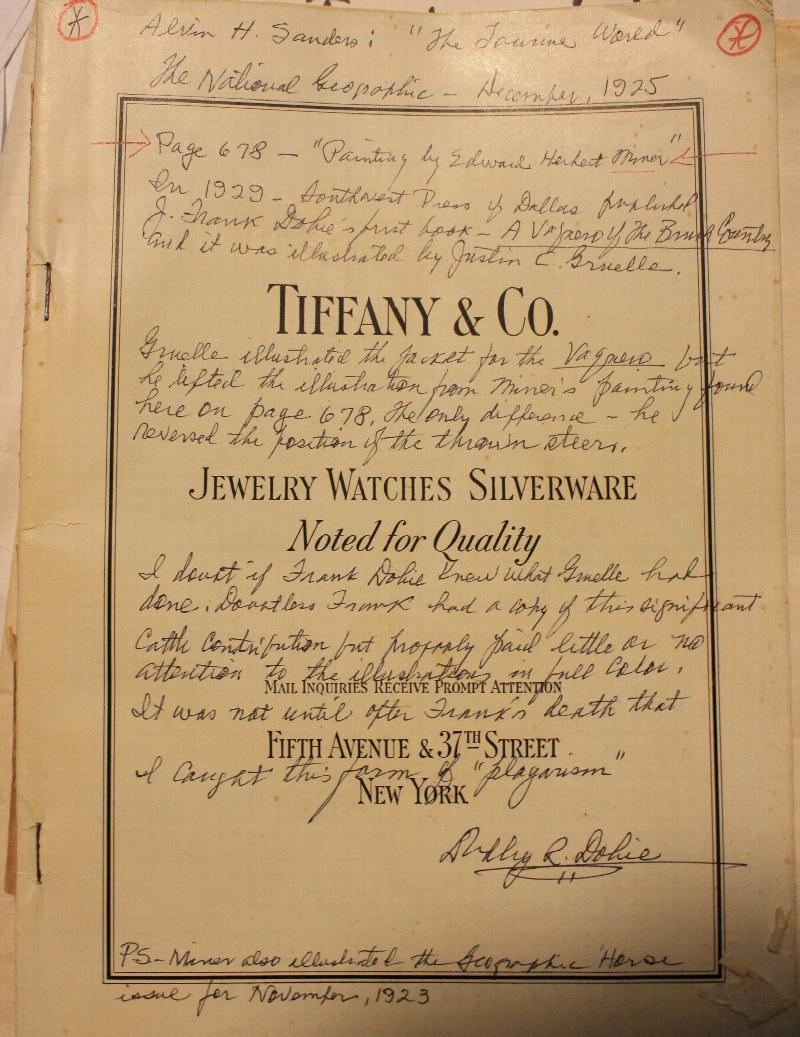 Alvin H. Sanders: "The Taurine World"
The National Geographic - December, 1925
Page 678 - "Painting by Edward Herbert Miner"
In 1929 - Southwest Press of Dallas published
J. Frank Dobie's first book - A Vaquero of The Brush Country
and it was illustrated by Justin C. Gruelle.
TIFFANY & CO.
Gruelle illustrated the jacket for the Vaquero but
he lifted the illustration from Miner's painting found
here on page 678. The only difference - he
reversed the position of the thrown steers.
JEWELRY WATCHES SILVERWARE
Noted for Quality
I doubt if Frank Dobie knew what Gruelle had
done. Doubtless Frank had a copy of this significant
Cattle Contribution but probably paid little or no
attention to the illustrations in full color.
MAIL INQUIRIES RECEIVE PROMPT ATTENTION
It was not until after Frank's death that
FIFTH AVENUE & 37TH STREET
I caught this form of "plagarism"
NEW YORK
Dudley R. Dobie
PS - Miner also illustrated the Geographic Horse
issue for November, 1923